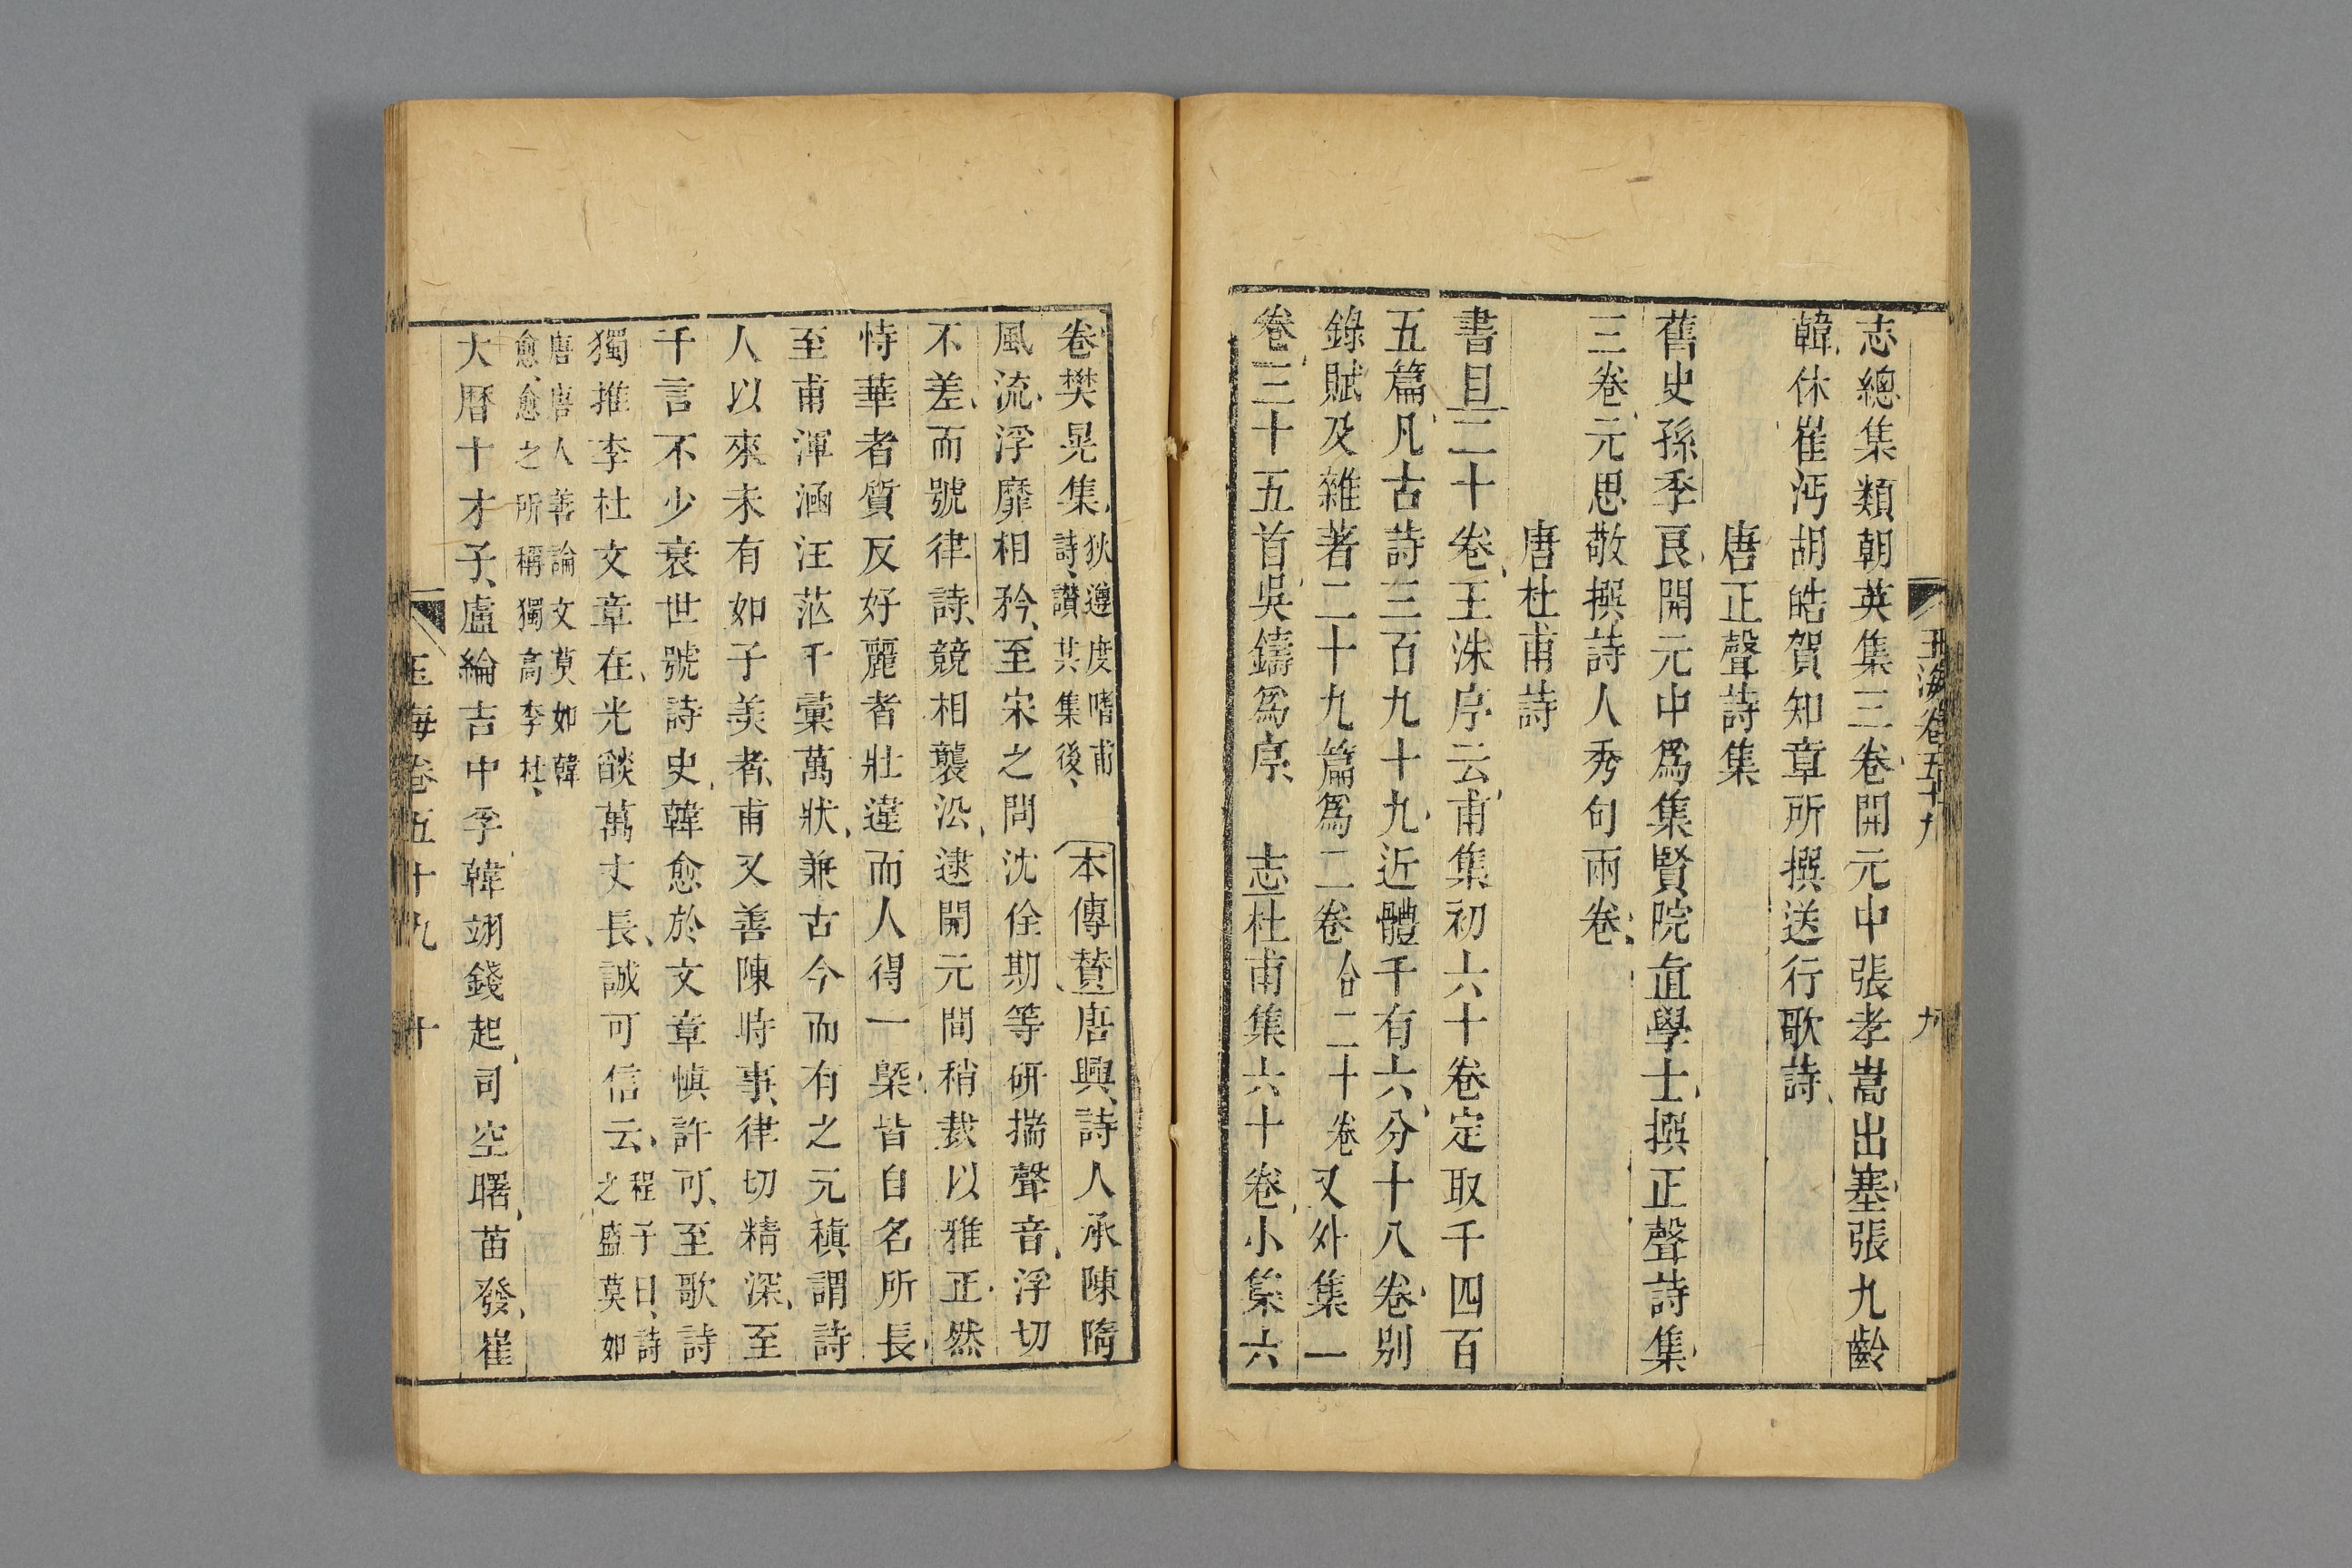 玉海卷五十九
九
志總集類朝英集三卷開元中張孝嵩出塞張九齡
韓休崔沔胡皓賀知章所撰送行歌詩
唐正聲詩集
舊史孫季良開元中爲集賢院直學士撰正聲詩集
三卷元思敬撰詩人秀句兩卷
唐杜甫詩
書目二十卷王洙序云甫集初六十卷定取千四百
五篇凡古詩三百九十九近體千有六分十八卷别
錄賦及雜著二十九篇爲二卷合二十卷又外集一
卷三十五首吳鑄爲序 志杜甫集六十卷小集六
卷樊晃集
狄遵度嗜甫
詩讚其集後
本傳贊唐興詩人承陳隋
風流浮靡相矜至宋之問沈佺期等研揣聲音浮切
不差而號律詩競相襲㳂逮開元間稍裁以雅正然
恃華者質反好麗者壯違而人得一槩皆自名所長
至甫渾涵汪茫千彙萬狀兼古今而有之元稹謂詩
人以來未有如子美者甫又善陳時事律切精深至
千言不少衰世號詩史韓愈於文章愼許可至歌詩
獨推李杜文章在光燄萬丈長誠可信云
程子曰詩
之盛莫如
唐唐人善論文莫如韓
愈愈之所稱獨高李杜
大曆十才子盧綸吉中孚韓翊錢起司空曙苗發崔
玉海卷五十九
十